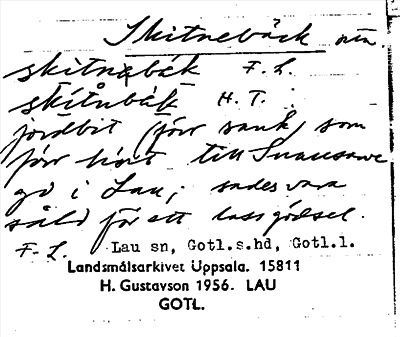 Skitnebäck ntn
skitnabäk F. L.
skitnbäk H. T.
jordbit (förr sank) som
förr hört till Snausarve
gd i Lau; sades vara
såld för ett lass gödsel.
F. L. Lau sn, Gotl.s.hd, Gotl.l.
Landsmålsarkivet Uppsala. 15811
H. Gustavson 1956. LAU
GOTL.